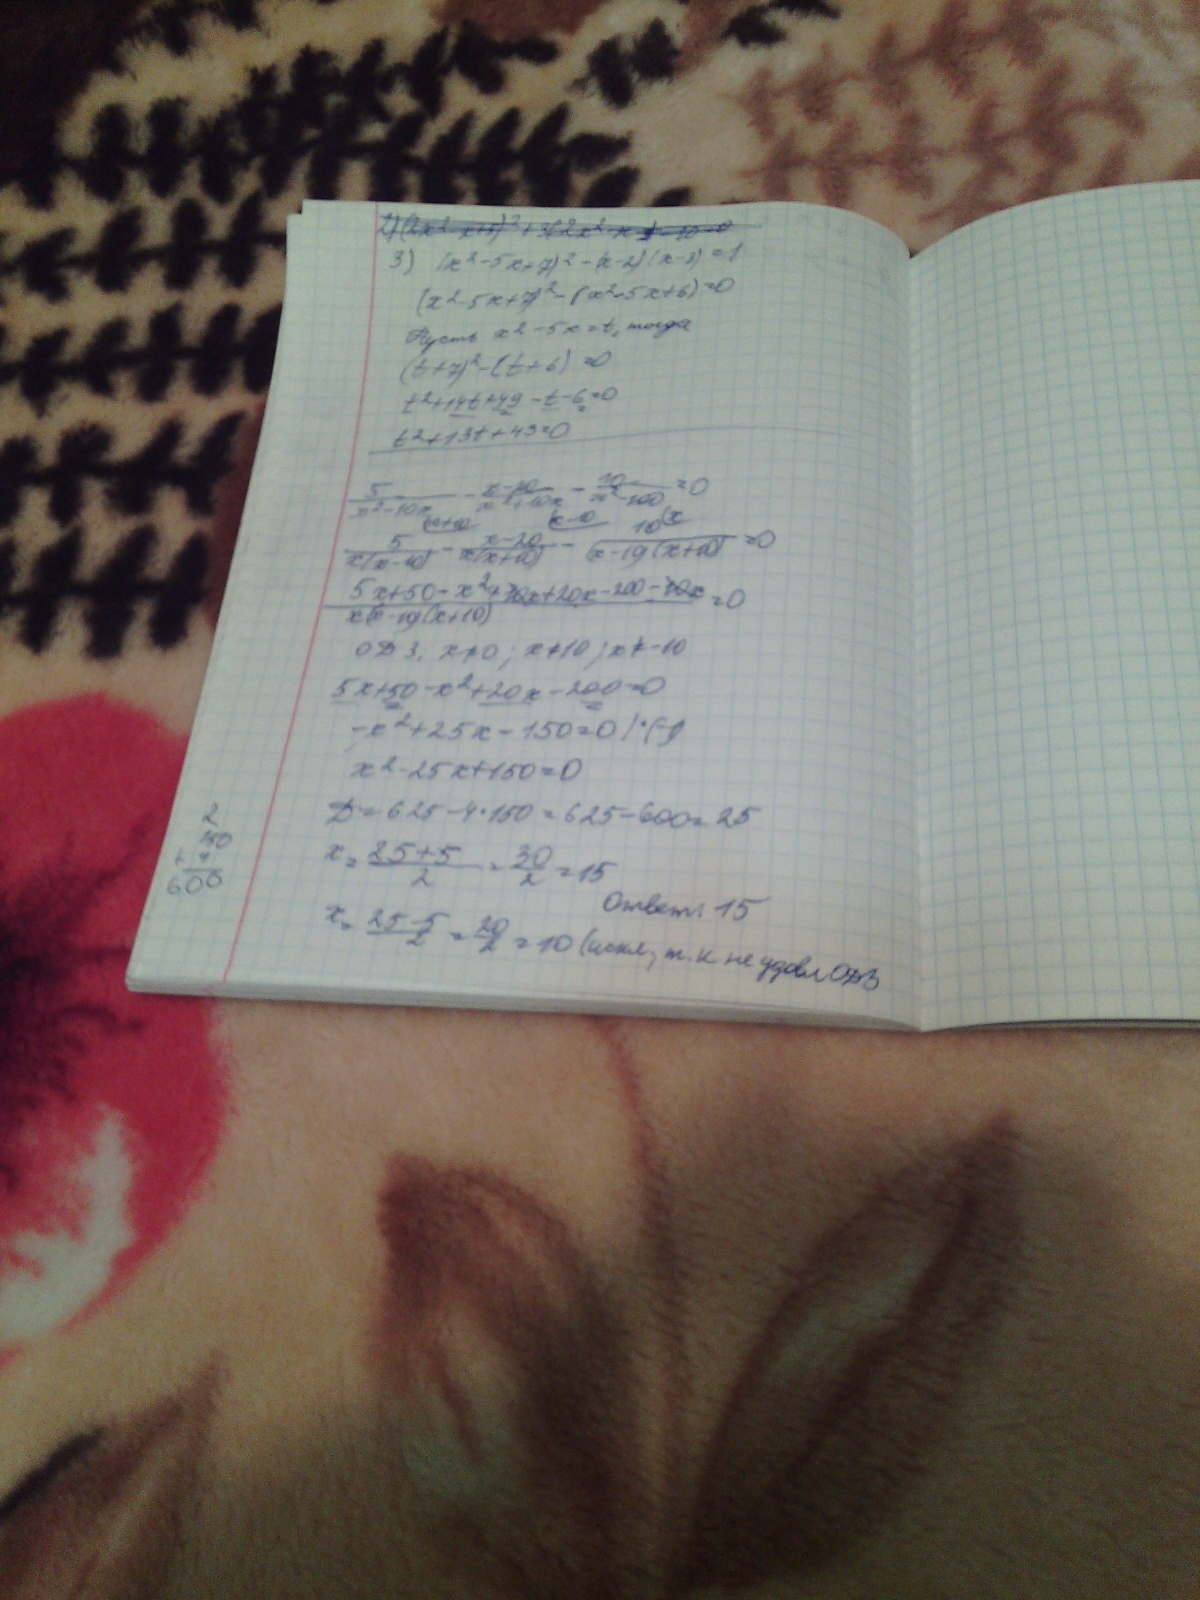 3) (x²-5x+7)²-(x-2)(x-3)=1
(x²-5x+7)²-(x²-5x+6)=0
Пусть x²-5x=t, тогда
(t+7)²-(t+6)=0
t²+14t+49-t-6=0
t²+13t+43=0
5/(x²-10x) - (x-20)/(x²+10x) - 10/(x²-100) =0
5/(x(x-10)) (x+10 - (x-20)/(x(x+10)) (x-10 - 10/((x-10)(x+10)) (x =0
(5x+50-x²+10x+20x-200-10x)/(x(x-10)(x+10)) =0
ОДЗ: x≠0; x≠10; x≠-10
5x+50-x²+20x-200=0
-x²+25x-150=0 |·(-1)
x²-25x+150=0
D=625-4·150=625-600=25
2
150
× 4
600
x=(25+5)/2=30/2=15
Ответ: 15
x=(25-5)/2=20/2=10 (искл, т.к не удовл ОДЗ